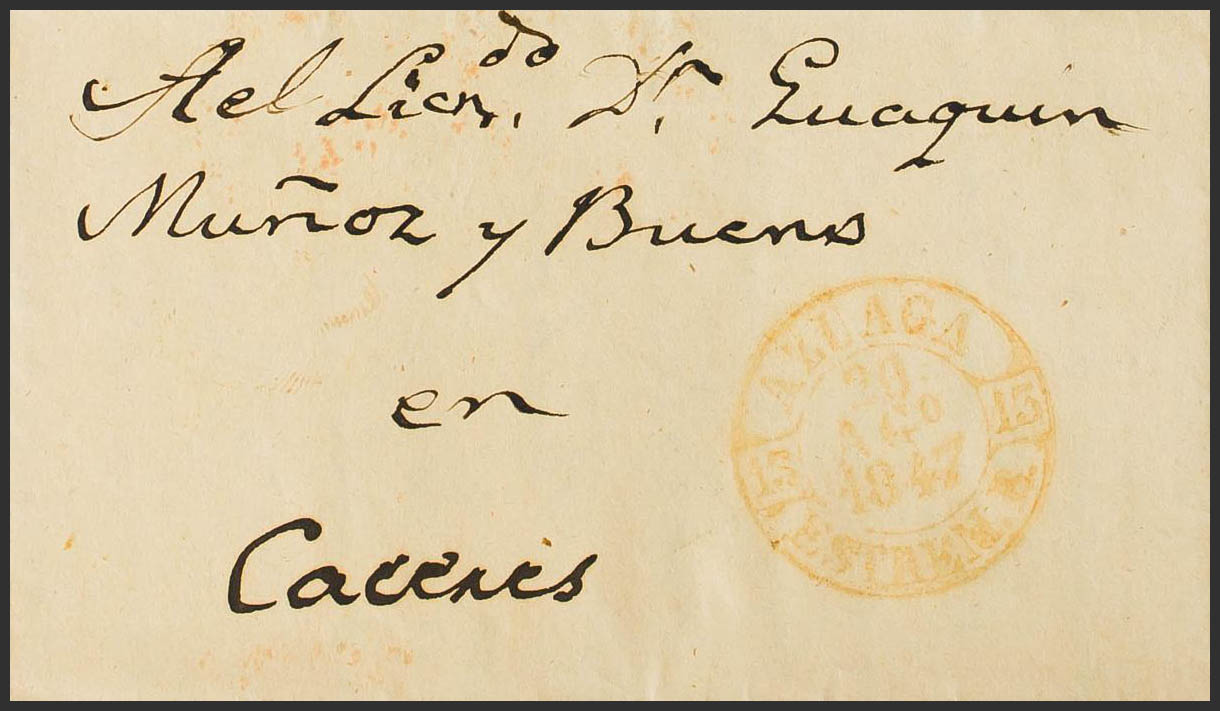 Ael Licndo. Dn. Juaquin
Muñoz y Bueno
en
Caceres
AZUAGA
20
AGO
1847
15 15
ESTREM